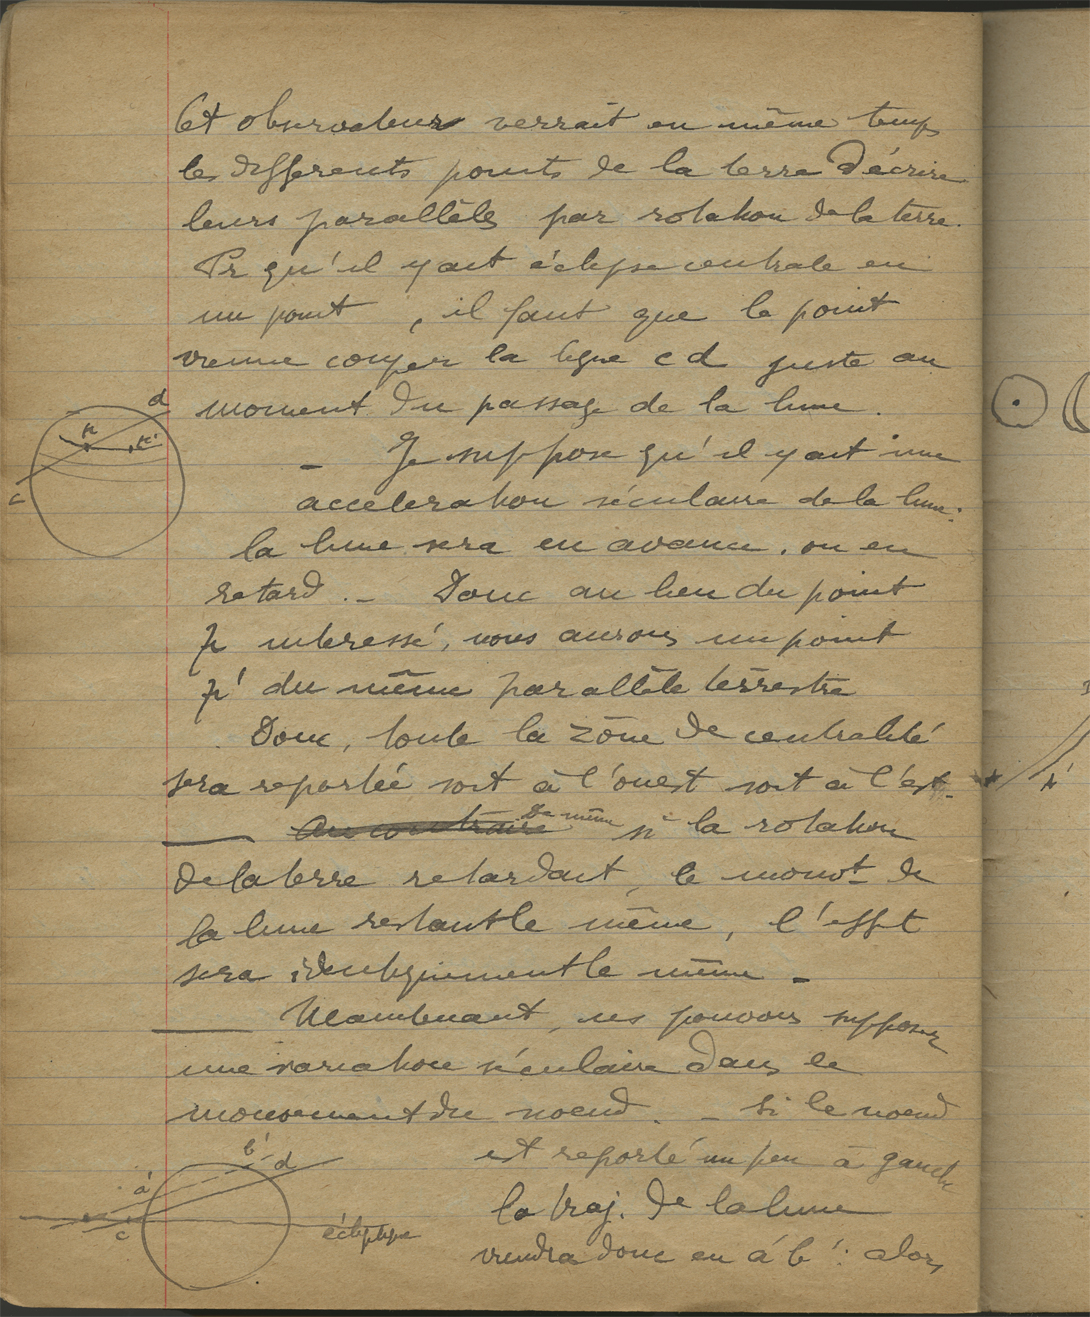 Cet observateur verrait en même temps
les differents points de la terre décrire
leurs parallèles par rotation de la terre.
Pr qu'il y ait éclipse centrale en
un point, il faut que le point
vienne couper la ligne cd juste au
moment du passage de la lune.
d
p
p'
c
— Je suppose qu'il y ait une
acceleration séculaire de la lune:
la lune sera en avance, ou en
retard. — Donc au lieu du point
p interessé, nous aurons un point
p' du même parallèle terrestre
Donc, toute la zône de centralité
sera reportée soit à l'ouest soit à l'est.
— Au contraire De même si la rotation
de la terre retardait, le mouvt de
la lune restant le même, l'effet
sera identiquement le même —
— Maintenant, ns pouvons supposer
une variation séculaire dans le
mouvement du noeud. — Si le noeud
est reporté un peu à gauche
la traj. de la lune
viendra donc en a'b': alors
b'
d
a'
c
écliptique